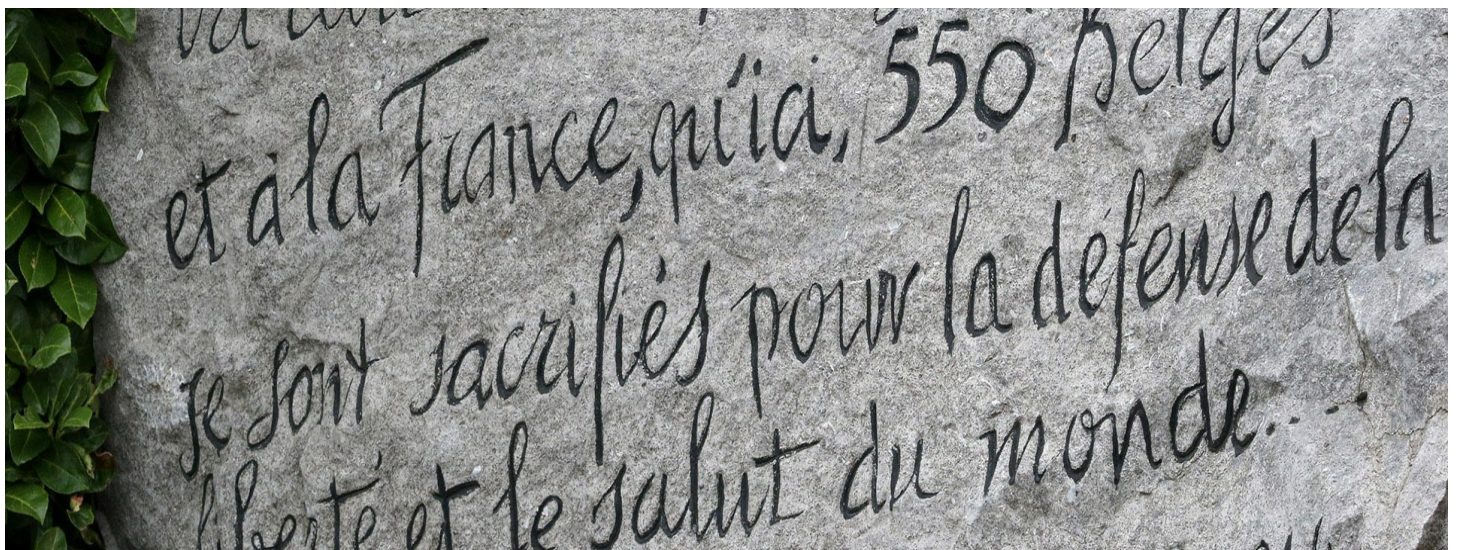 et à la France, qu'ici, 550 Belges
se sont sacrifiés pour la défense de la
liberté et le salut du monde...